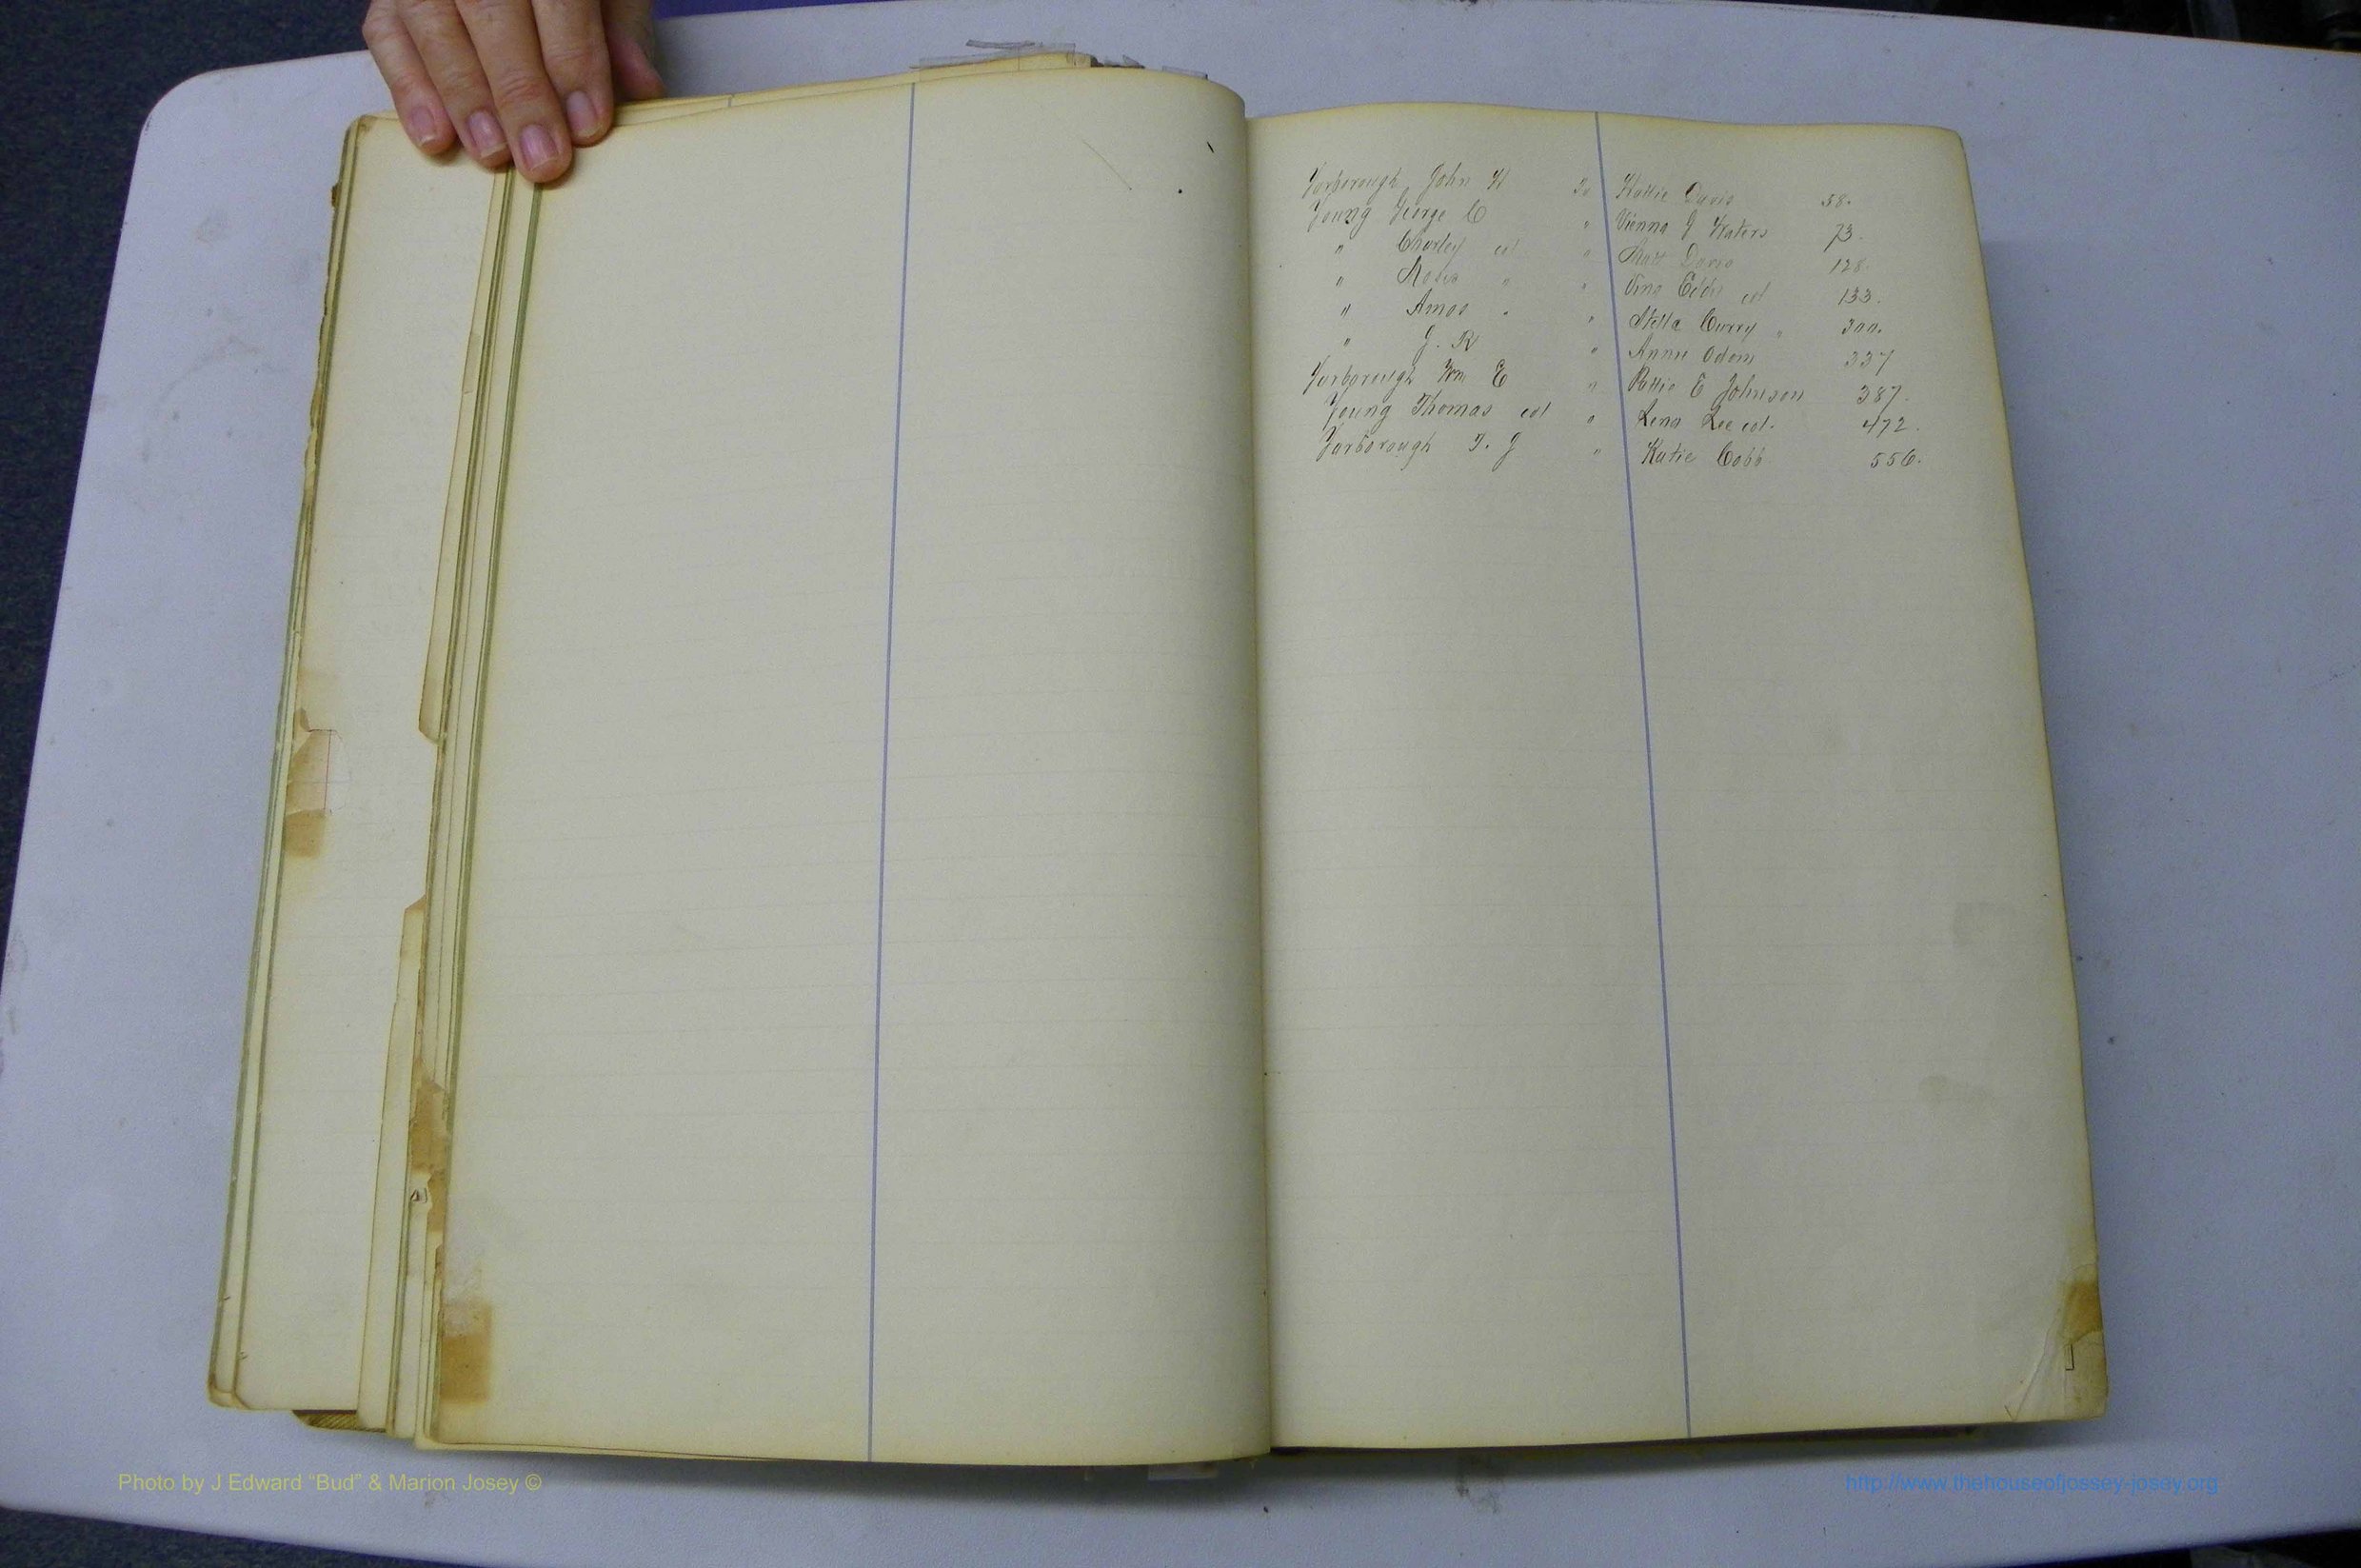 Yarborough John H To Hattie Davis 58.
Young George C " Vienna J Waters 73.
" Charley col " Matt Davis 128.
" Moses " " Vina Eddie col 133.
" Amos " " Stella Curry " 300.
" J. R " Annie Odom 337
Yarborough Wm E " Pattie E Johnson 387.
Young Thomas col " Lena Lee col. 472.
Yarborough T. J " Katie Cobb 556.
Photo by J Edward “Bud” & Marion Josey ©
http://www.thehouseofjossey-josey.org